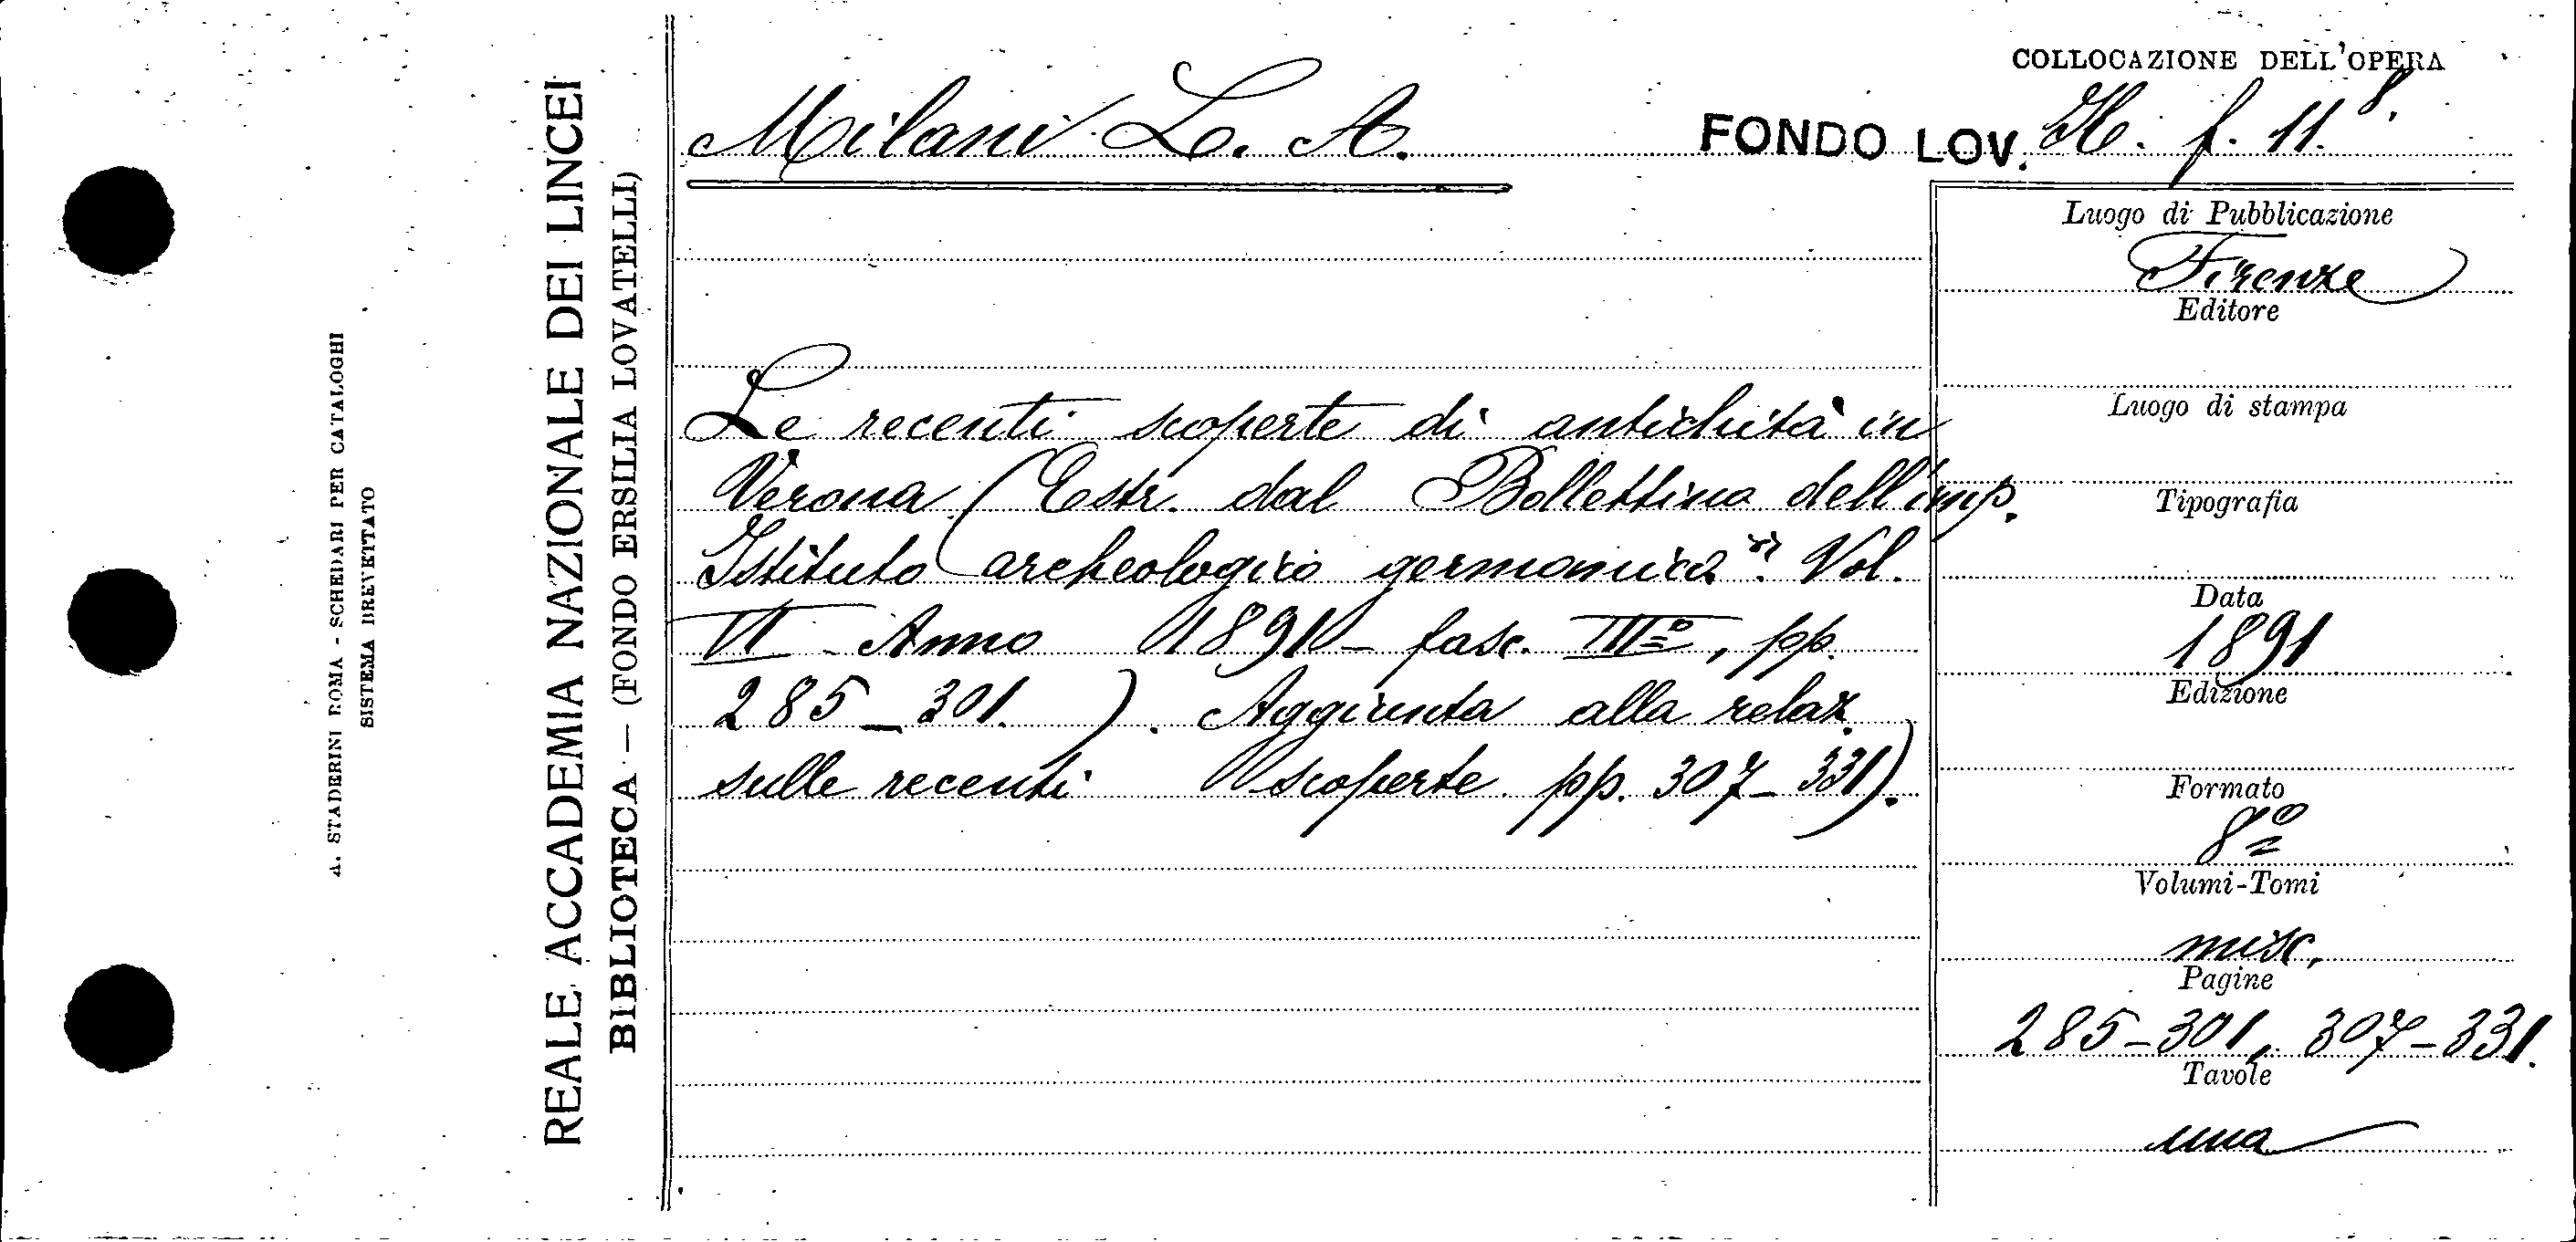 A. STADERINI ROMA - SCHEDARI PER CATALOGHI
SISTEMA BREVETTATO
REALE ACCADEMIA NAZIONALE DEI LINCEI
BIBLIOTECA — (FONDO ERSILIA LOVATELLI)
COLLOCAZIONE DELL'OPERA
Milani L. A.
FONDO LOV. H. f. 11.8.
Le recenti scoperte di antichità in
Verona (Estr. dal Bollettino dell'imp.
Istituto archeologico germanico". Vol.
VI - Anno 1891 - fasc. IIIº, pp.
285_301.). Aggiunta alla relaz.
sulle recenti scoperte pp. 307-331).
Luogo di Pubblicazione
Firenze
Editore
Luogo di stampa
Tipografia
Data
1891
Edizione
Formato
8º
Volumi-Tomi
misc.
Pagine
285-301, 307-331.
Tavole
una